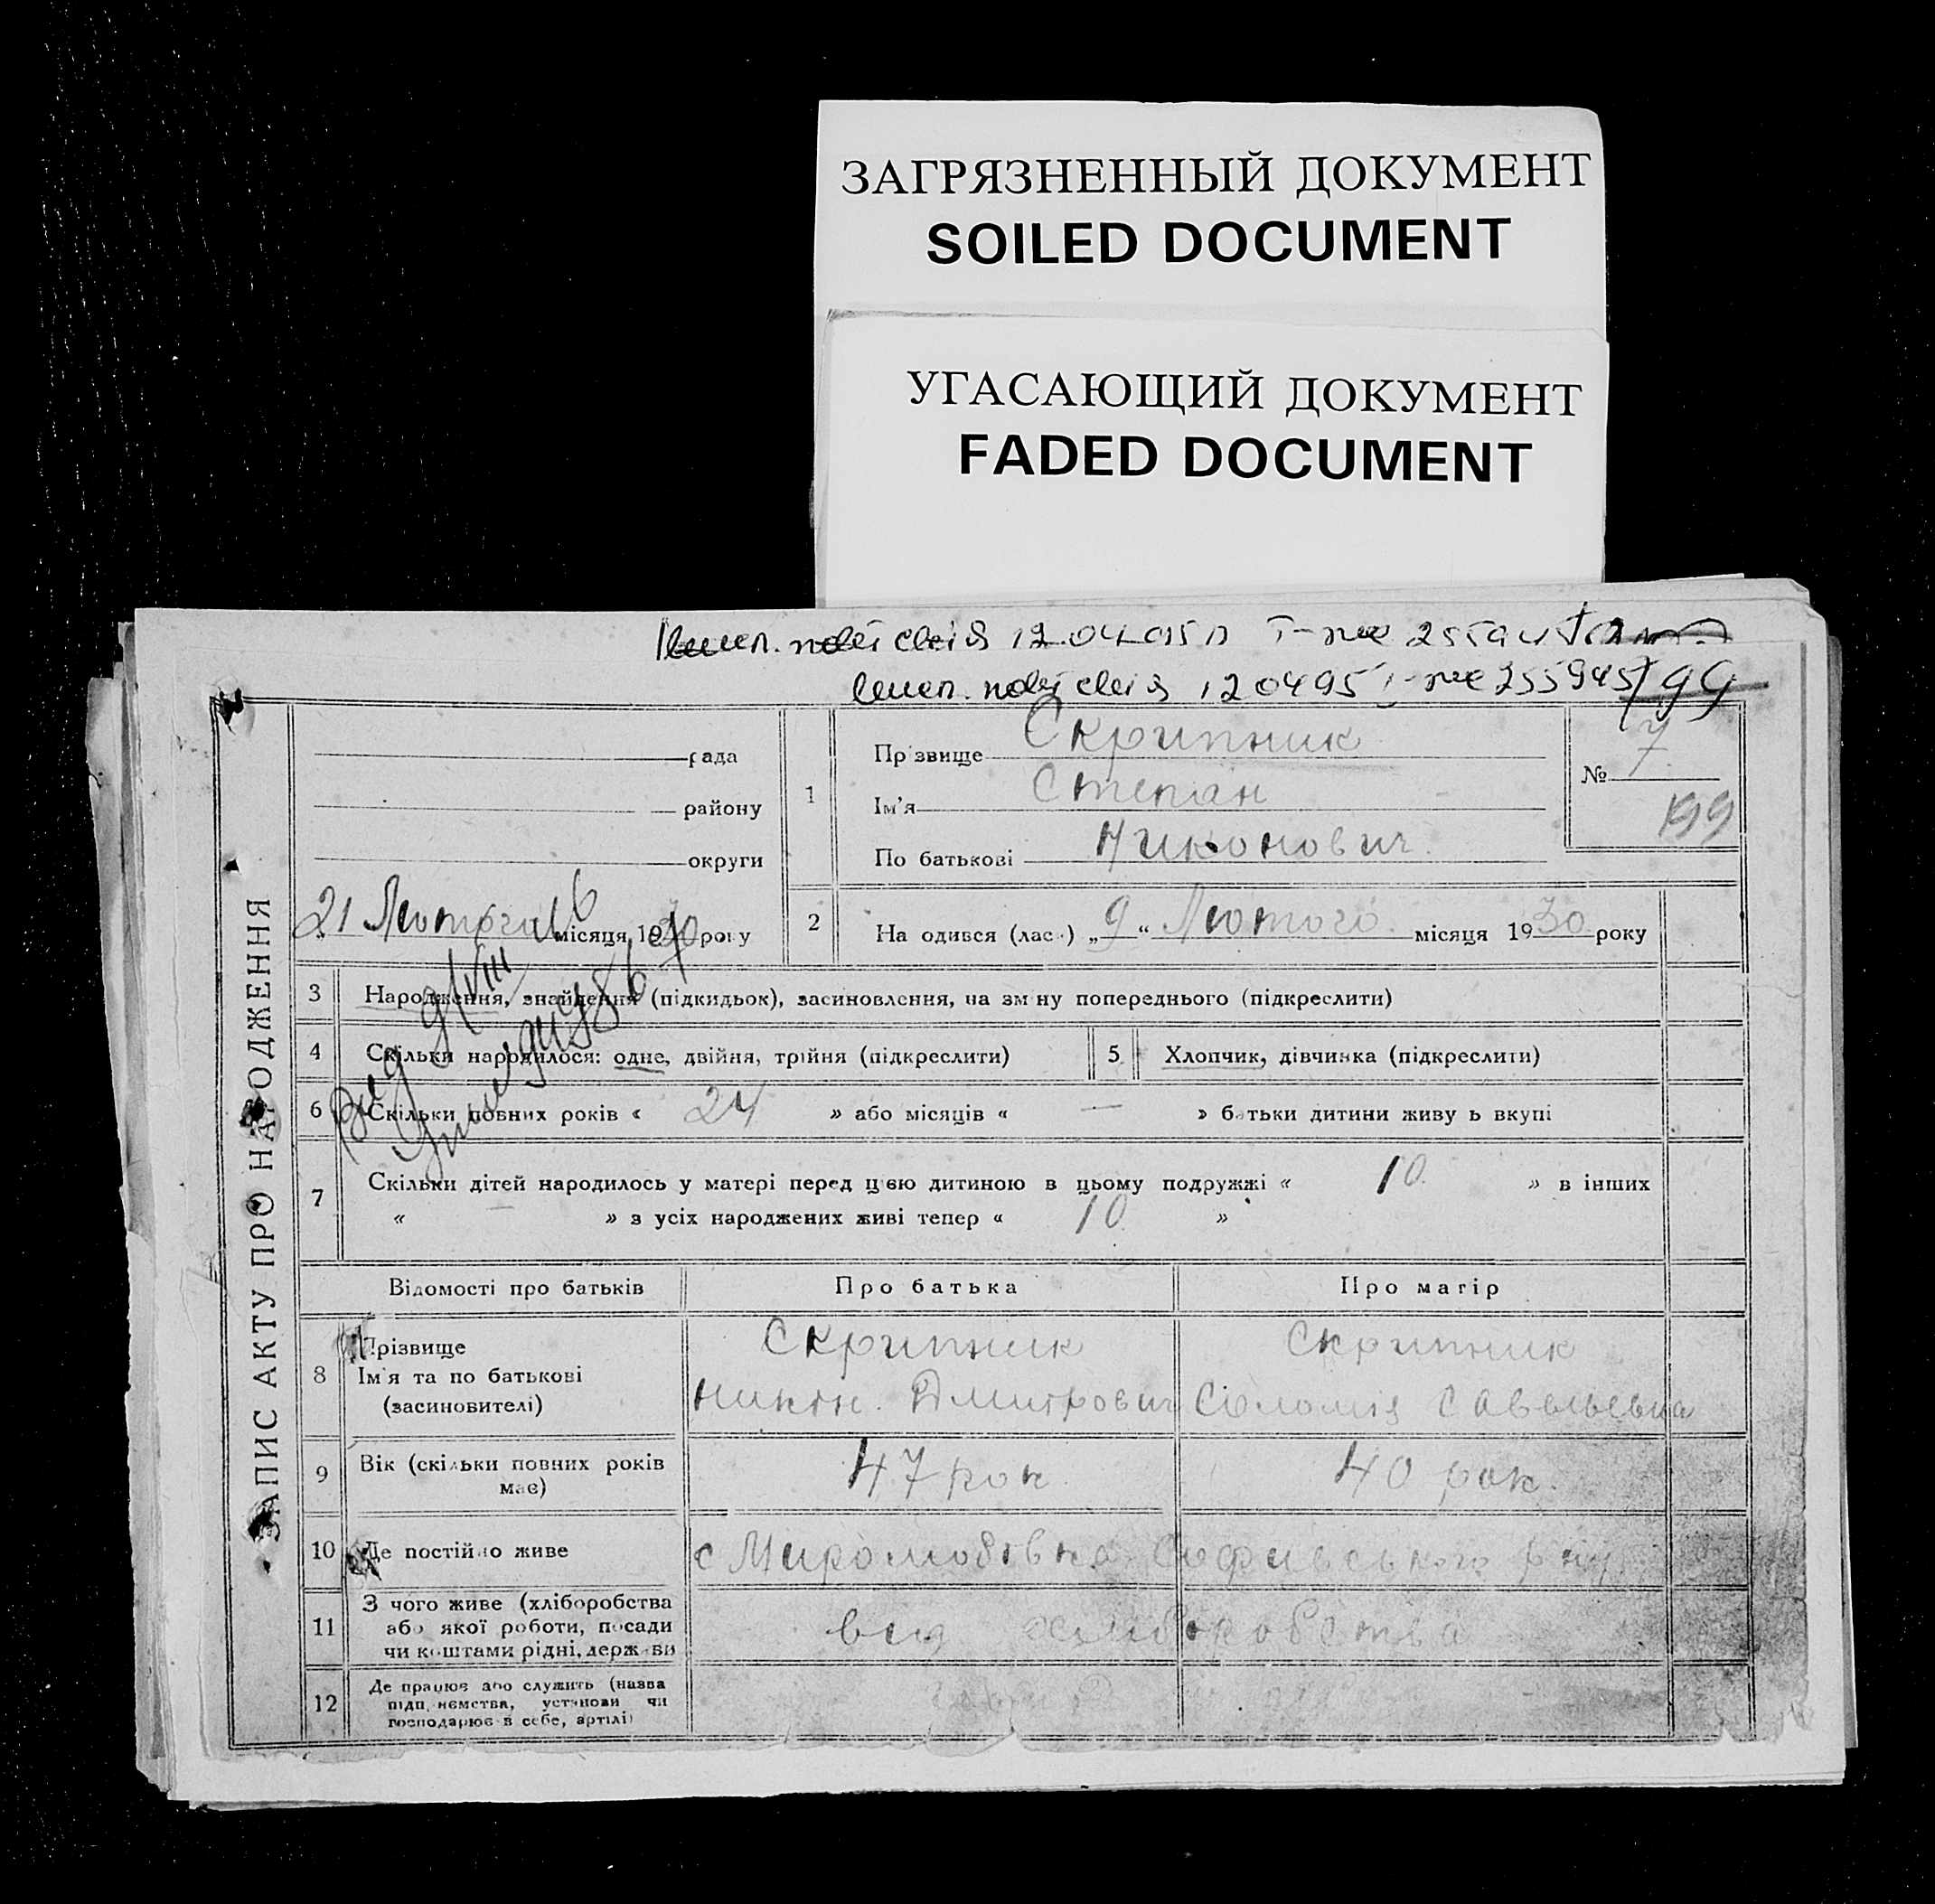 ЗАГРЯЗНЕННЫЙ ДОКУМЕНТ
SOILED DOCUMENT
УГАСАЮЩИЙ ДОКУМЕНТ
FADED DOCUMENT
12.04.95
120495 255945
199
ЗАПИС АКТУ ПРО НАРОДЖЕННЯ
рада
району
округи
21 Лютого місяця 1930 року
1
Прізвище Скрипник
Ім'я Степан
По батькові Никонович
№ 7
199
2
На одився (лас ) „9“ Лютого місяця 1930 року
3 Народження, знайдення (підкидьок), засиновлення, на зм ну попереднього (підкреслити)
4 Скільки народилося: одне, двійня, трійня (підкреслити) 5 Хлопчик, дівчинка (підкреслити)
6 Скільки повних років « 24 » або місяців « — » батьки дитини живу ь вкупі
7 Скільки дітей народилось у матері перед цією дитиною в цьому подружжі « 10 » в інших
« — » з усіх народжених живі тепер « 10 »
Відомості про батьків Про батька Про матір
8 Прізвище Скрипник Скрипник
Ім'я та по батькові Никон Дмитрович Соломія Савельевна
(засиновителі)
9 Вік (скільки повних років має) 47 рок 40 рок.
10 Де постійно живе с Миролюбівка Софиевського р-ну
11 З чого живе (хліборобства
або якої роботи, посади
чи коштами рідні, держави
вид хлиборобства
12 Де працює або служить (назва
підп иємства, установи чи
господарює в себе, артілі)